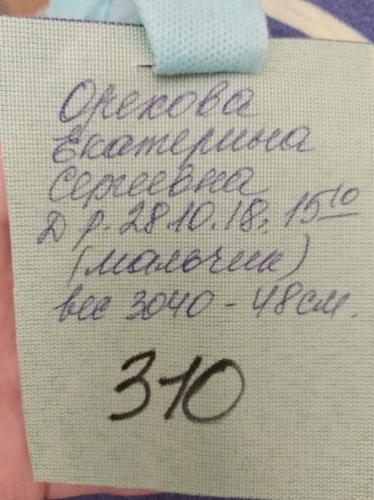 Орехова
Екатерина
Сергеевна
Д р. 28.10.18г. 15 10
(мальчик)
вес 3040 - 48см.
310